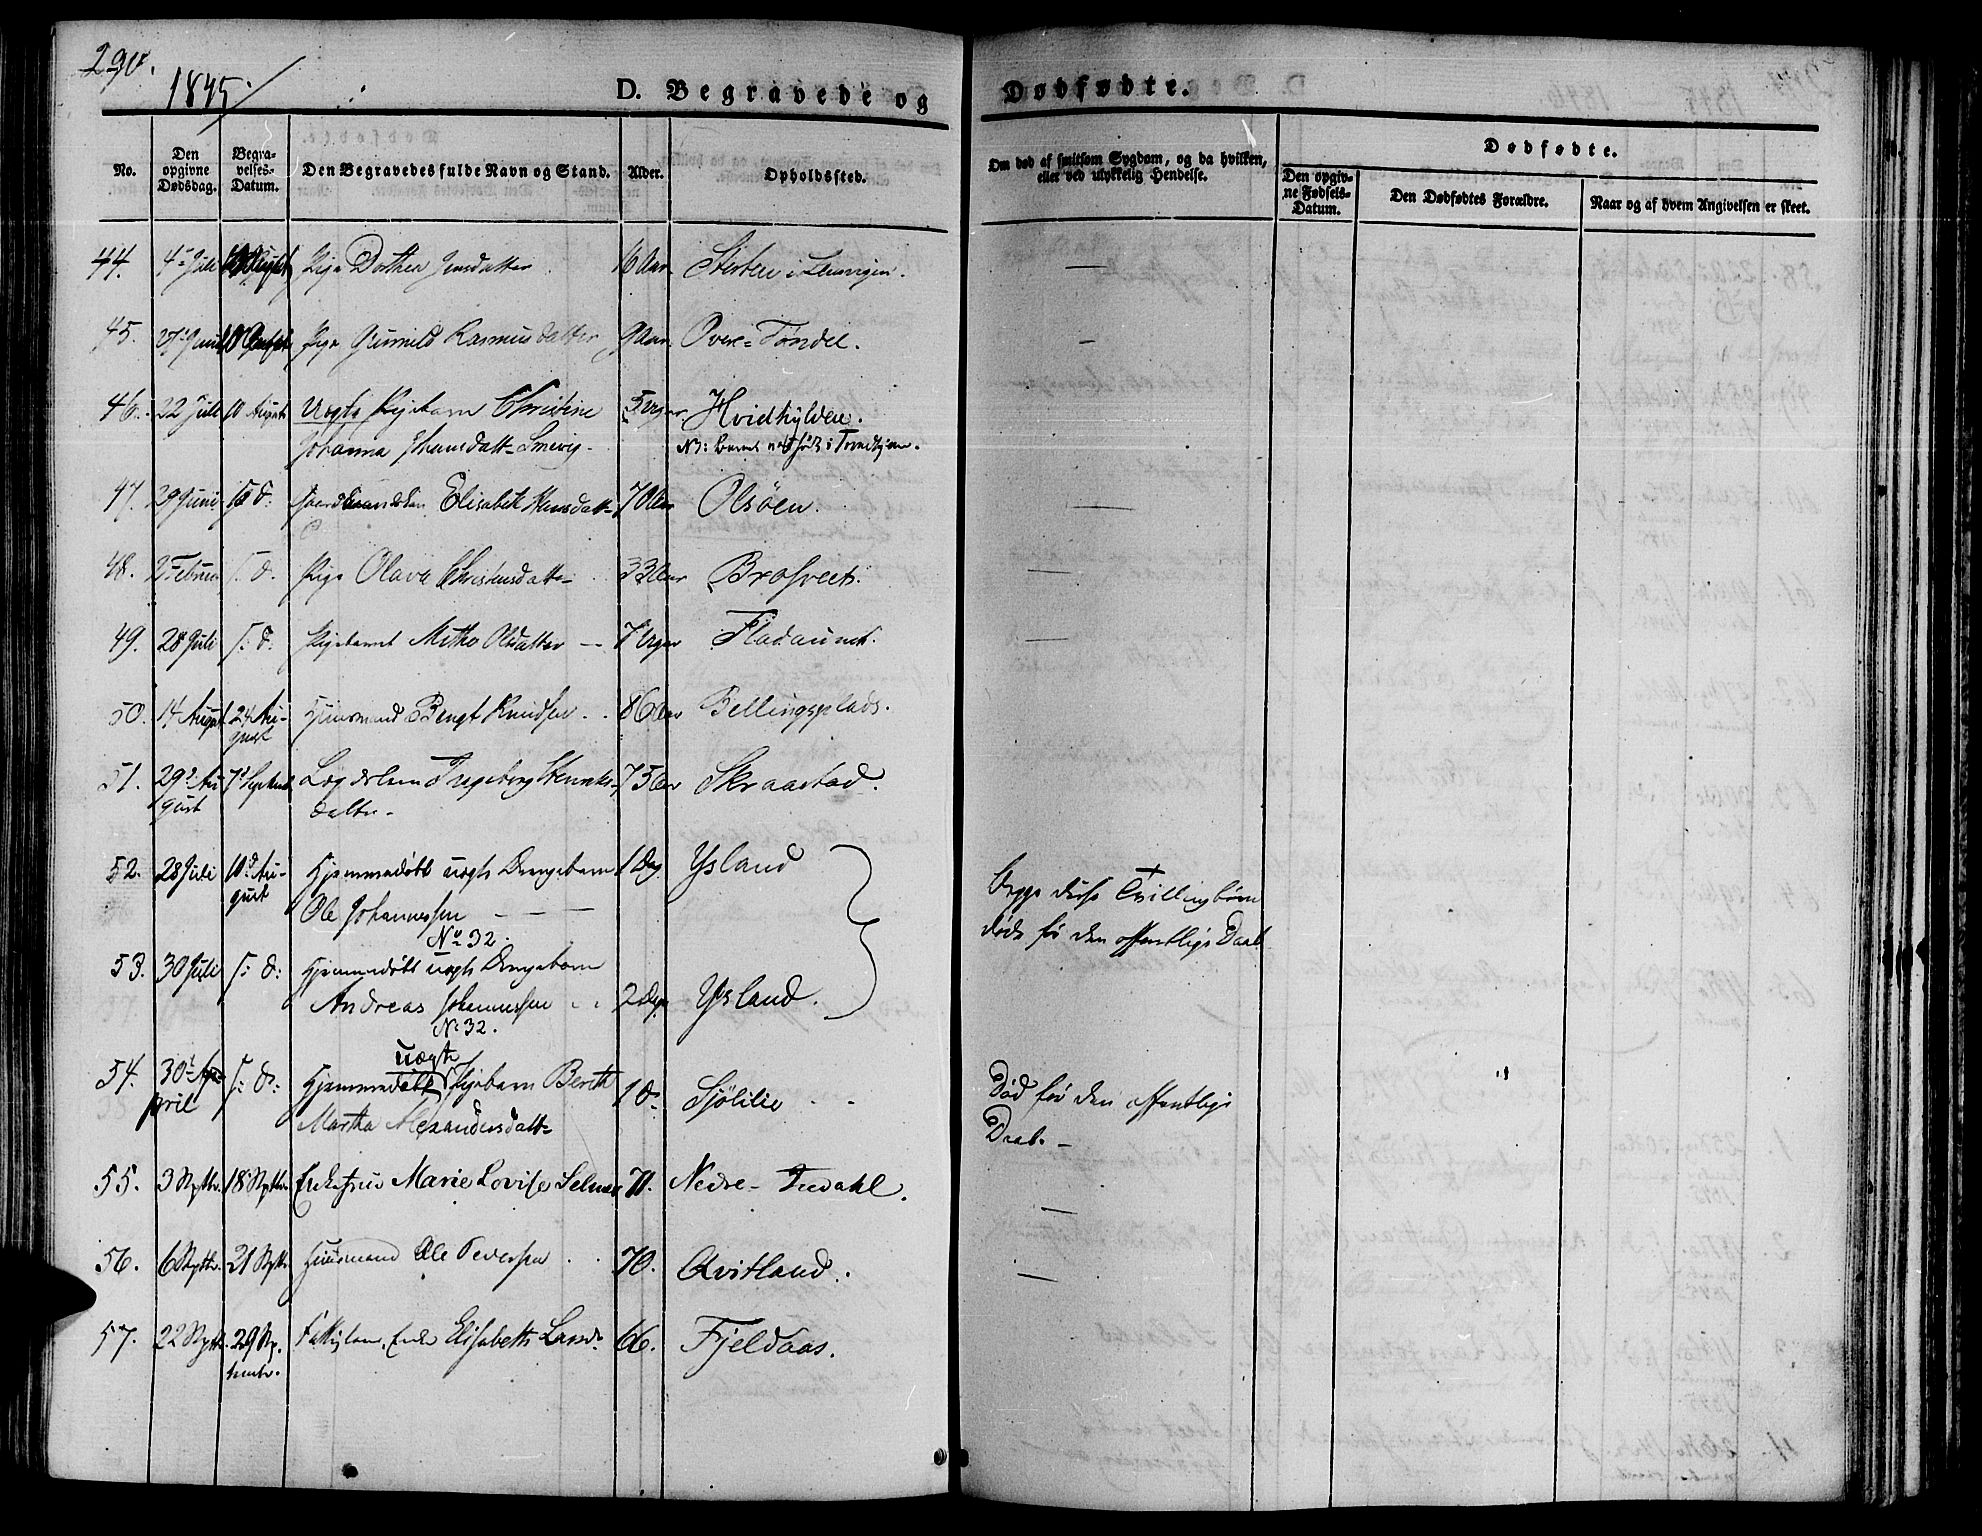 290.
1845.
D. Begravede og Dødfødte.
No.
Den opgivne Dødsdag.
Begravelses-Datum.
Den Begravedes fulde Navn og Stand.
Alder.
Opholdssted.
Om død af smitsom Sygdom, og da hvilken, eller ved ulykkelig Hendelse.
Dødfødte.
Den opgivne Fødsels-Datum.
Den Dødfødtes Forældre.
Naar og af hvem Angivelsen er skeet.
44. 4 Juli August Pige Dorthea Jensdatter 16 Aar —
45. Pige Gunnild Rasmusdatter 9 Aar Øvre-Tøndel. —
46. 22 Juli 10 August Uægte Pigebarn Christine 5 Uger Hvidhylden.
Johanna
NB: Barnet var født i Trondhjem.
—
47. 29 Juni Elisabeth Hansdatt- 70 Aar Olsöen. —
48. 2 Februar s. d. Pige Olava Christensdatt- 33 Aar Brøsveet. —
49. 28 Juli s: d: Pigebarnet Olsdatter — 7 Uger Fladaunet. —
50. 14 August 24 August Huusmand Bengt Knudsen 86 Aar Bellingsplads.
51. 29 August 7 Septemb Ingeborg 75 Aar Skraastad.
datter-
52. 28 Juli 10 August Hjemmedøbt uægte Drengebarn 1 Dag Ysland
Ole Johannessen — — —
No 32.
Begge disse Tvillingbørn
døde før den offentlige Daab
53. 30 Juli s: d: Hjemmedøbt uægte Drengebarn
Andreas Johannessen 2 Dage Ysland.
No 32.
54. 30 April s: d: uægte
Hjemmedøbt Pigebarn Bereth 1 D. Sjölilie
Martha Alexandersdatt-
Død før den offentlige
Daab. —
55. 3 Septbr. 18 Septbr. Enkefrue Marie Lovise Selmer 71. Nedre- —
56. 6 Septbr. 21 Septbr. Huusmand Ole Pedersen 70. Qvitland. —
57. 22 Septbr. 29 September. Enke Elisabeth 66. Fjeldaas.